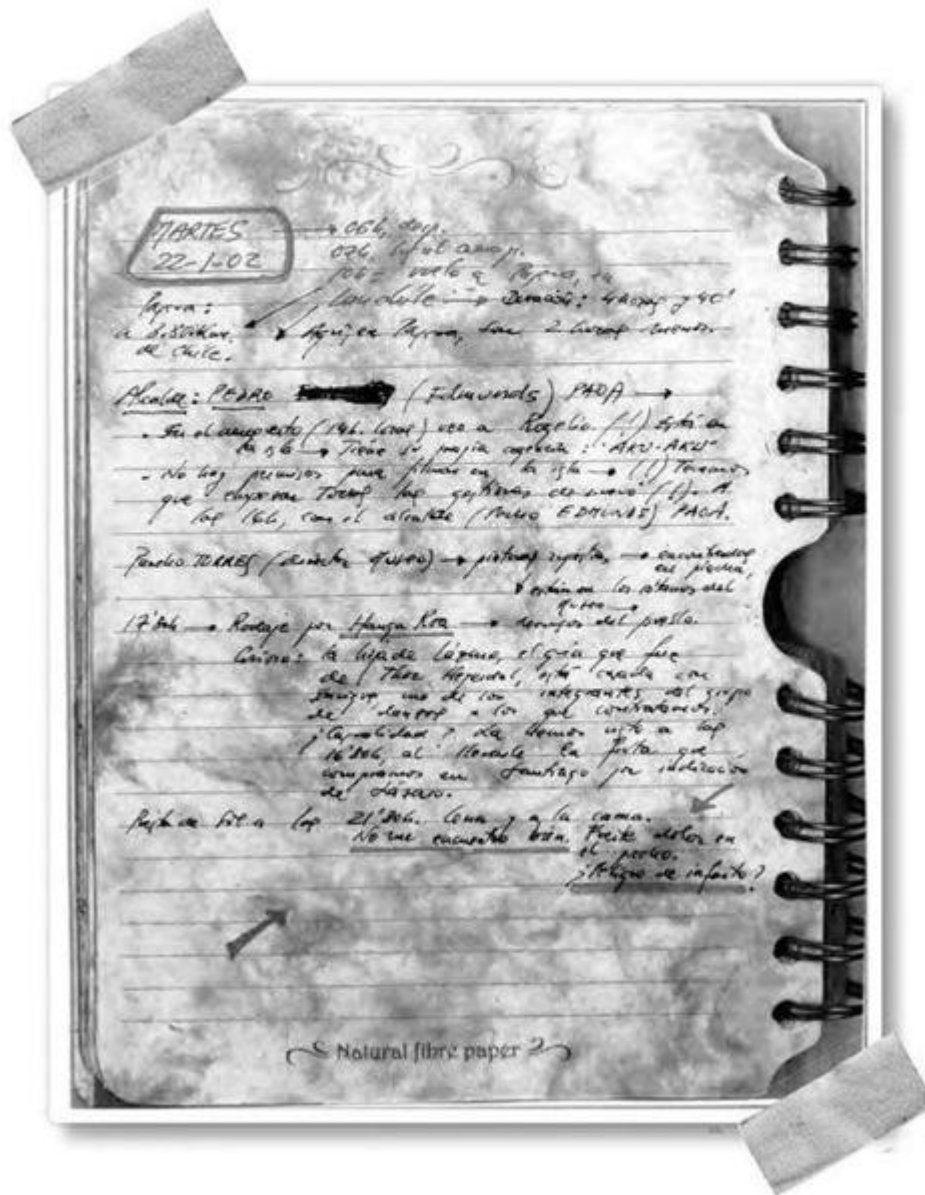 MARTES → 06h, desp.
22-1-02 07h, en el aerop.
10h = vuelo a Papua, en
Papua: → Duración: 4 horas y 40'
a
de Chile. → Aquí, en Papua, son 2 horas menos.
Alcalde: PEDRO (Edmunds) PAOA →
- En el aeropuerto (14h. local) veo a Rogelio (!) Está en
la isla → Tiene su propia agencia: "AKU-AKU"
- No hay permisos para filmar en la isla → (!) Tenemos
que empezar todas las gestiones de nuevo (!). A
las 16h, con el alcalde (Pedro EDMUNDS) PAOA.
Pancho TORRES (director museo) → pinturas → encontradas
en piedra,
están en los sótanos del
museo →
17'30h → Rodaje por Hanga Roa → del pueblo.
Curioso: la hija de Lázaro, el guía que fue
de Thor Heyerdal, está casada con
Enrique, uno de los integrantes del grupo
de danzas a los que contratamos.
¿Casualidad? La hemos visto a las
16'30h, al llevarle la fruta que
compramos en Santiago por indicación
de Lázaro.
Puesta de sol a las 21'30h. Cena y a la cama.
No me encuentro bien. Fuerte dolor en
el pecho.
¿Peligro de infarto?
Natural fibre paper